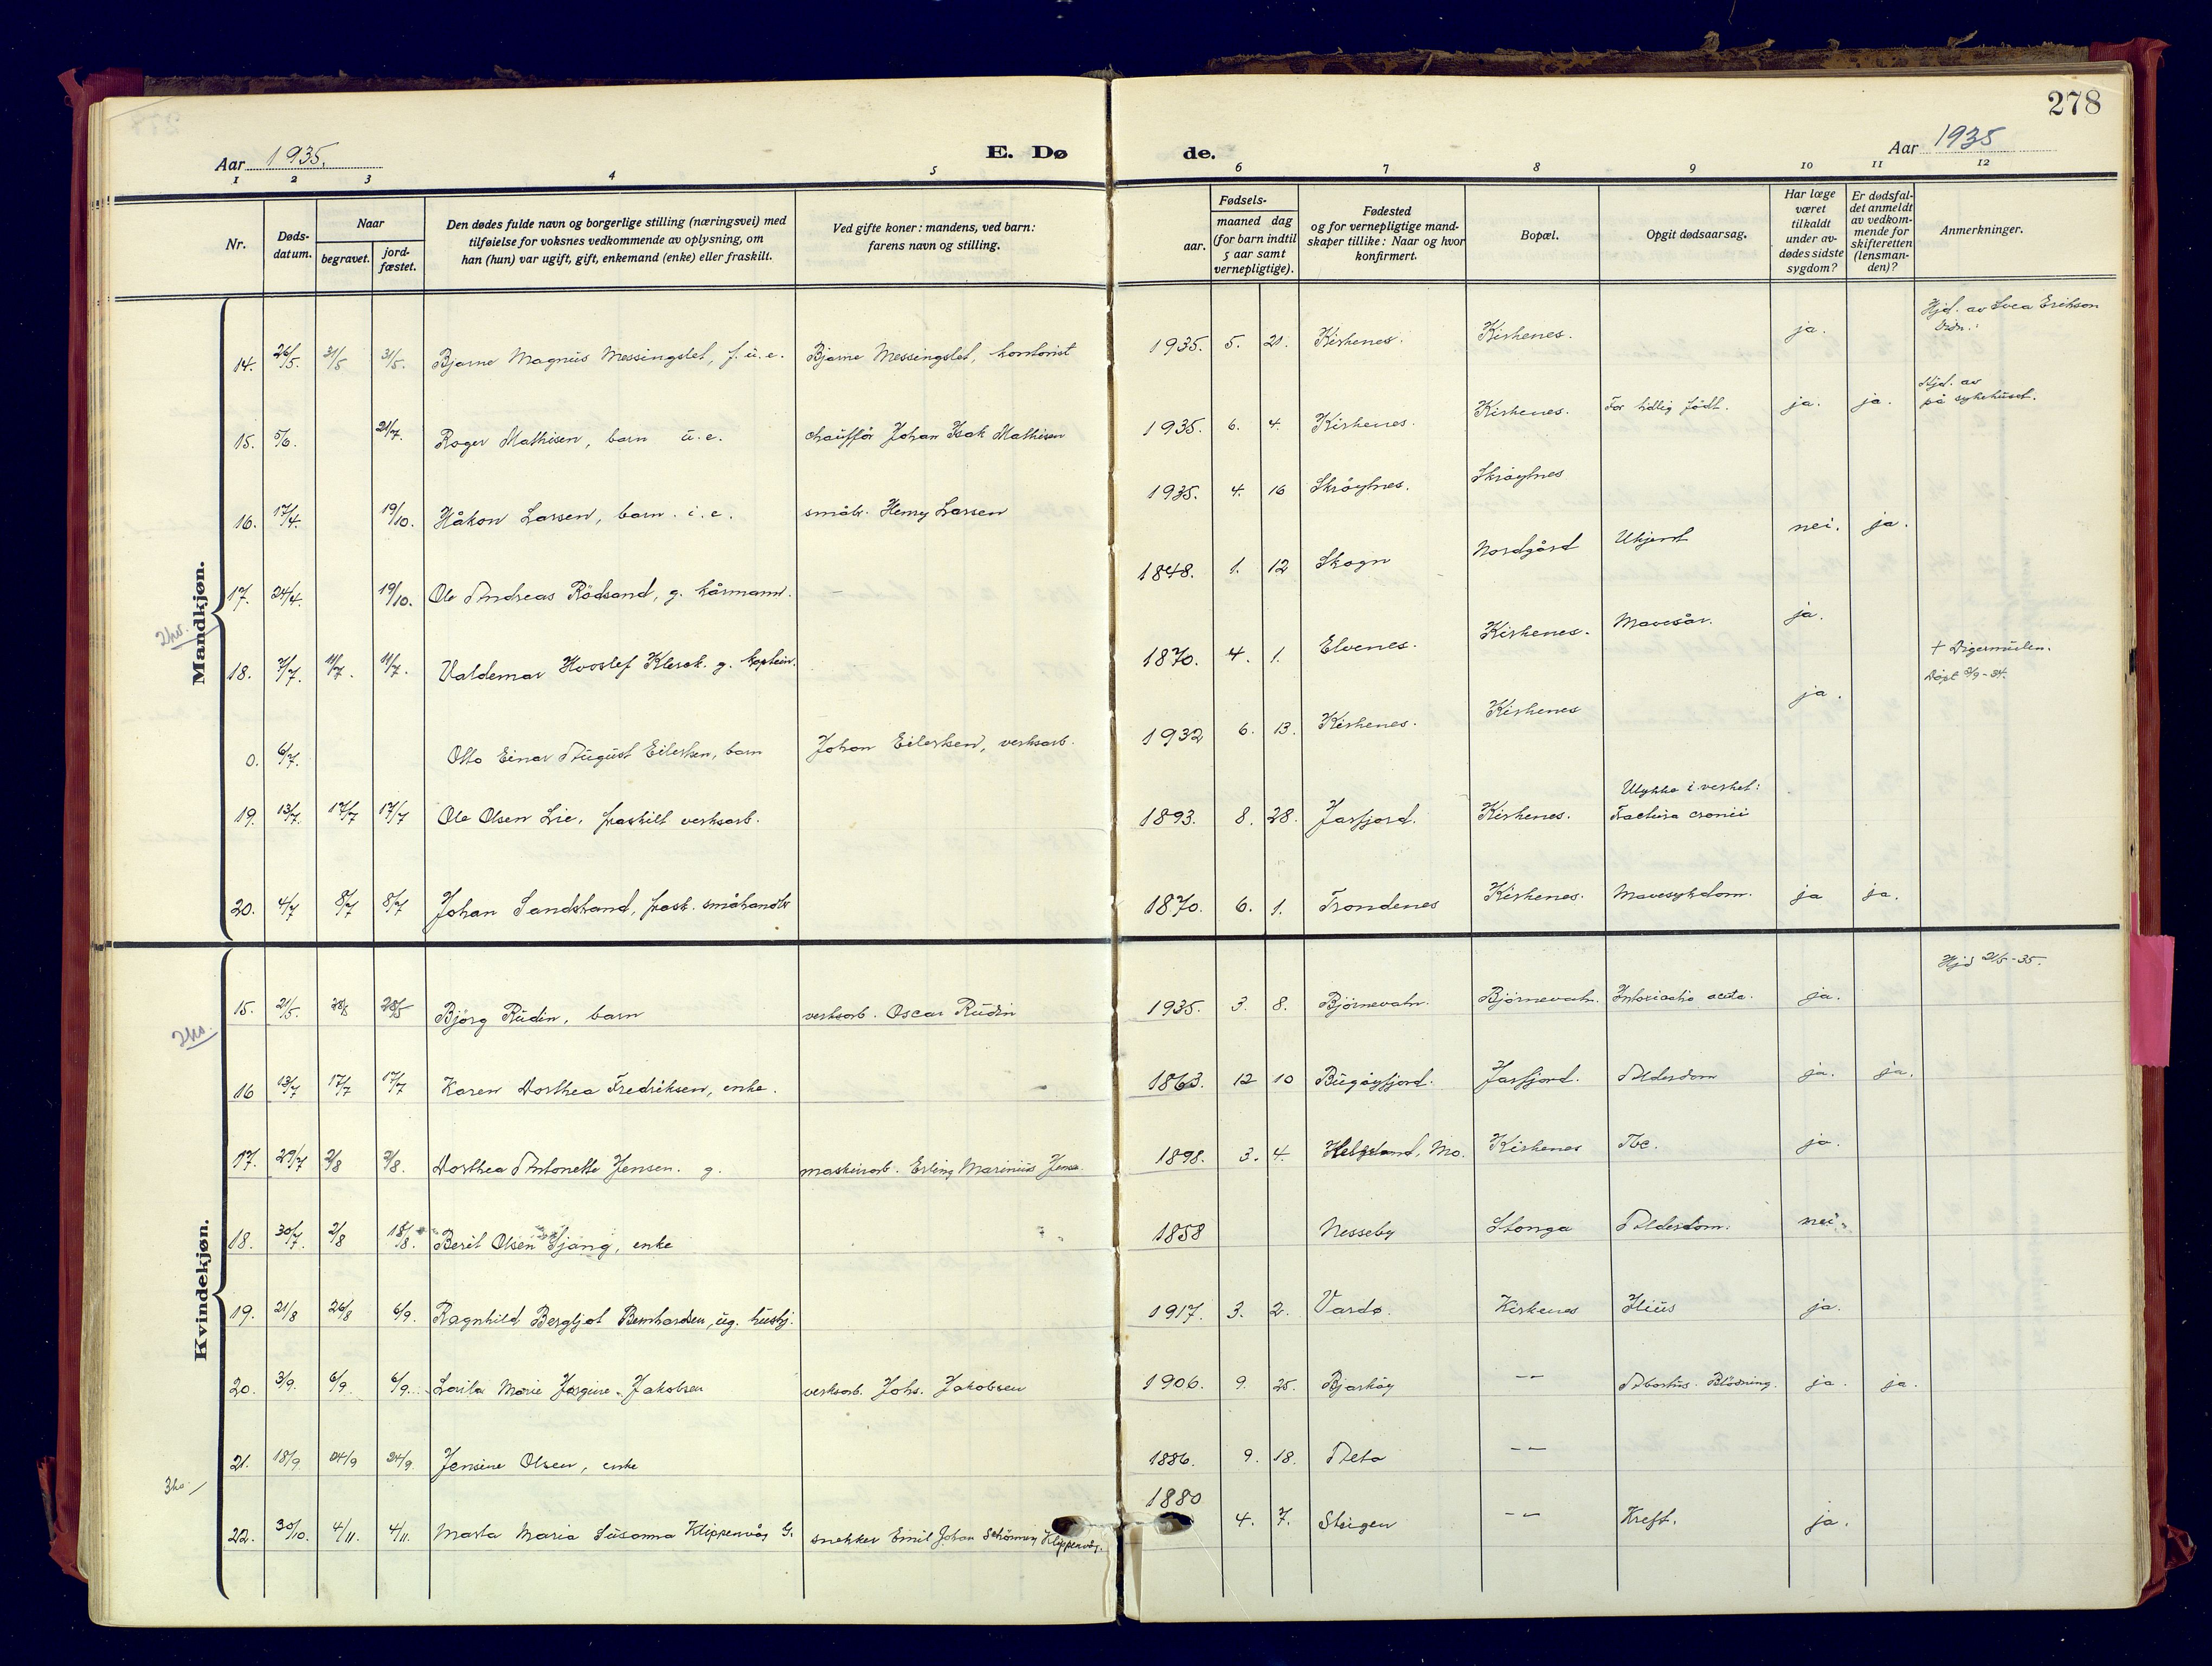 278
Aar 1935. E. Dø de. Aar 1935
1 2 3 4 5 6 7 8 9 10 11 12
Nr.
Døds-
datum.
Naar
begravet.
jord-
fæstet.
Den dødes fulde navn og borgerlige stilling (næringsvei) med
tilføielse for voksnes vedkommende av oplysning, om
han (hun) var ugift, gift, enkemand (enke) eller fraskilt.
Ved gifte koner: mandens, ved barn:
farens navn og stilling.
Fødsels-
aar.
maaned dag
(for barn indtil
5 aar samt
vernepligtige).
Fødested
og for vernepligtige mand-
skaper tillike: Naar og hvor
konfirmert.
Bopæl.
Opgit dødsaarsag.
Har læge
været
tilkaldt
under av-
dødes sidste
sygdom?
Er dødsfal-
det anmeldt
av vedkom-
mende for
skifteretten
(lensman-
den)?
Anmerkninger.
Mandkjøn.
14. 26/5. 31/5 31/5. Bjarne Magnus Messingslet, f. u. e. Bjarne Messingslet, kontorist 1935. 5. 21. Kirkenes. Kirkenes. ja. Hjd. av Svea Erikson
15. 5/6. 21/7. Roger Mathisen, barn u. e. chauffør Johan Isak Mathisen 1935. 6. 4. Kirkenes. Kirkenes. For tidlig født. ja. ja. Hjd. av
på sykehuset.
16. 17/4. 19/10. Håkon Larsen, barn. i. e. småbr. Henry Larsen 1935. 4. 16 Skrøytnes. Skrøytnes
17. 24/4. 19/10. Ole Andreas Rødsand, g. kårmann. — 1848. 1. 12 Skogn Nordgård Ukjent nei. ja.
18. 7/7. 11/7. 11/7. Valdemar Hvoslef Klerck. g. kaptein. 1870. 4. 1. Elvenes. Kirkenes. Mavesår. ja.
0. 6/7. Otto Einar August Eilertsen, barn Johan Eilertsen, verksarb. 1932 6. 13. Kirkenes. Kirkenes ja. + Digermulen.
Døpt 2/9-34.
19. 13/7. 17/7 17/7 Ole Olsen Lie, fraskilt verksarb. 1893. 8. 28. Jarfjord. Kirkenes. Ulykke i verket:
Fractura cranii
20. 4/7 8/7 8/7 Johan Sandstrand, frask. småhandlr 1870. 6. 1. Trondenes Kirkenes. Mavesykdom. ja ja.
Kvindekjøn.
15. 21/5. 28/5 28/5 Bjørg Rudin, barn verksarb. Oscar Rudin 1935. 3. 8. Bjørnevatn. Bjørnevatn. acuta. ja. Hjd 21/5-35.
16 13/7 17/7 17/7 Karen Dorthea Fredriksen, enke. 1863. 12 10 Bugøyfjord. Jarfjord. Alderdom ja. ja.
17. 29/7 2/8 2/8. Dorthea Antonette Jensen. g. maskinarb. Erling Marinius Jensen 1898. 3. 4. Helgeland, Mo. Kirkenes Tbc. ja.
18. 30/7. 2/8 18/8. Berit Olsen Sjang, enke 1858 Nesseby Stonga Alderdom. nei.
19. 21/8 26/8 6/9. Ragnhild Bergljot Bernhardsen, ug. hushj. 1917. 3. 2. Vardø. Kirkenes Ilius ja.
20. 3/9. 6/9. 6/9. Marie Jørgine Jakobsen verksarb. Johs. Jakobsen 1906. 9. 25. Bjarkøy -- Abortus. Blødning. ja. ja.
21. 18/9. 24/9 24/9. Jensine Olsen, enke 1886. 9. 18. Alta --
22. 30/10. 4/11. 4/11. Marta Maria Susanna Klippenvåg G. snekker Emil Johan Klippenvåg. 1880 4. 7. Steigen -- Kreft. ja.